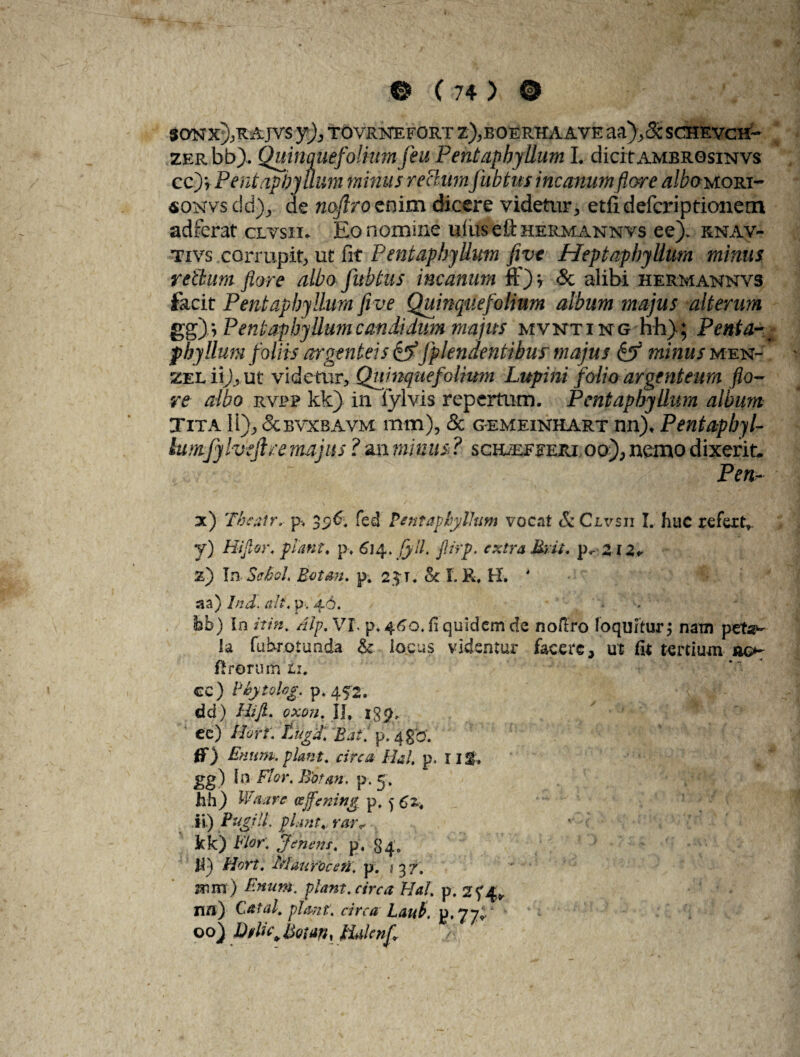 ( 74 )
SONX),RAJVS y), TOVRNEFORT z),BOERHAAVE aa),& SCHEVCH-
ZER bb). Quinquefolium seu Pentaphyllum I. dicit AMBROSINVS
cc); Pentaphyllum minus rectum subtus incanum flore albo MORI-
SONVS dd), de nostro enim dicere videtur, etsi descriptionem
adferat CLVSII. Eo nomine usus est HERMANNVS ee). KNAV-
TIVS corrupit, ut sit Pentaphyllum sive Heptaphyllum minus
rectum flore albo subtus incanum ff); & alibi HERMANNVS
facit Pentaphyllum sive Quinquefolium album majus alterum
gg); Pentaphyllum candidum majus MVNTING hh); Penta-
phyllum foliis argenteis & splendentibus majus & minus MEN-
ZEL ii), ut videtur, Quinquefolium Lupini folio argenteum flo-
re albo RVPP kk) in sylvis repertum. Pentaphyllum album
TITA ll), & BVXBAVM mm), & GEMEINHART nn). Pentaphyl-
lum sylvestre majus ? an minus ? SCHÆFFERI oo), nemo dixerit.
Pen-
x) Theatr. p. 396. sed Pentaphyllum vocat & CLVSII I. huc refert.
y) Histor. plant. p. 614. syll. stirp. extra Brit. p. 212.
z) In Schol. Botan. p. 231. & I. R. H.
aa) Ind. alt. p. 40.
bb) In itin. Alp. VI. p. 460. si quidem de nostro loquitur; nam peta-
la subrotunda & locus videntur facere, ut sit tertium no-
strorum LI.
cc) Phytolog. p. 452.
dd) Hist. oxon. II. 189.
ee) Hort. Lugd. Bat. p. 480.
ff) Enum. plant. circa Hal. p. 118.
gg) In Flor. Botan. p. 5.
hh) Waare oeffening p. 562.
ii) Pugill. plant. rar.
kk) Flor. Jenens. p. 84.
ll) Hort. Maurocen. p. 137.
mm) Enum. plant. circa Hal. p. 254.
nn) Catal. plant. circa Laub. p. 77.
oo) Delic. Botan. Halens.